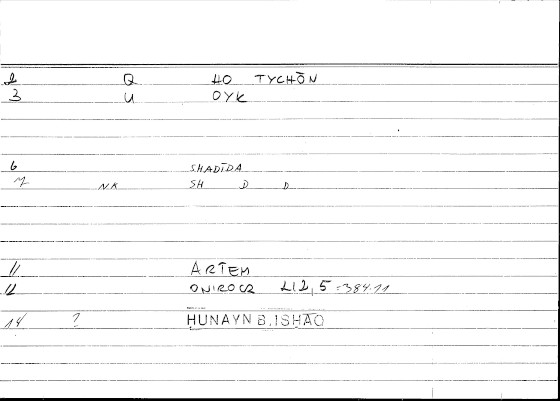 2 Q HO TYCHŌN
3 U OYK
6 SHADĪDA
NK SH D D
11 ARTEM
12 ONIROCR 212,5 = 384.11
14 ? HUNAYN B. ISHĀQ